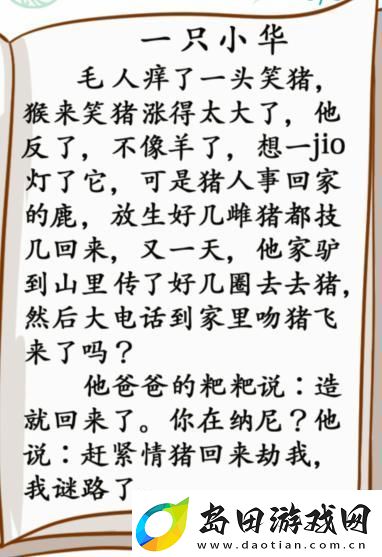 一只小华
毛人痒了一头笑猪，
猴来笑猪涨得太大了，他
反了，不像羊了，想一jio
灯了它，可是猪人事回家
的鹿，放生好几雌猪都技
几回来，又一天，他家驴
到山里传了好几圈去去猪，
然后大电话到家里吻猪飞
来了吗？
他爸爸的粑粑说：造
就回来了。你在纳尼？他
说：赶紧情猪回来劫我，
我谜路了
岛田游戏网
www.daotian.com.cn